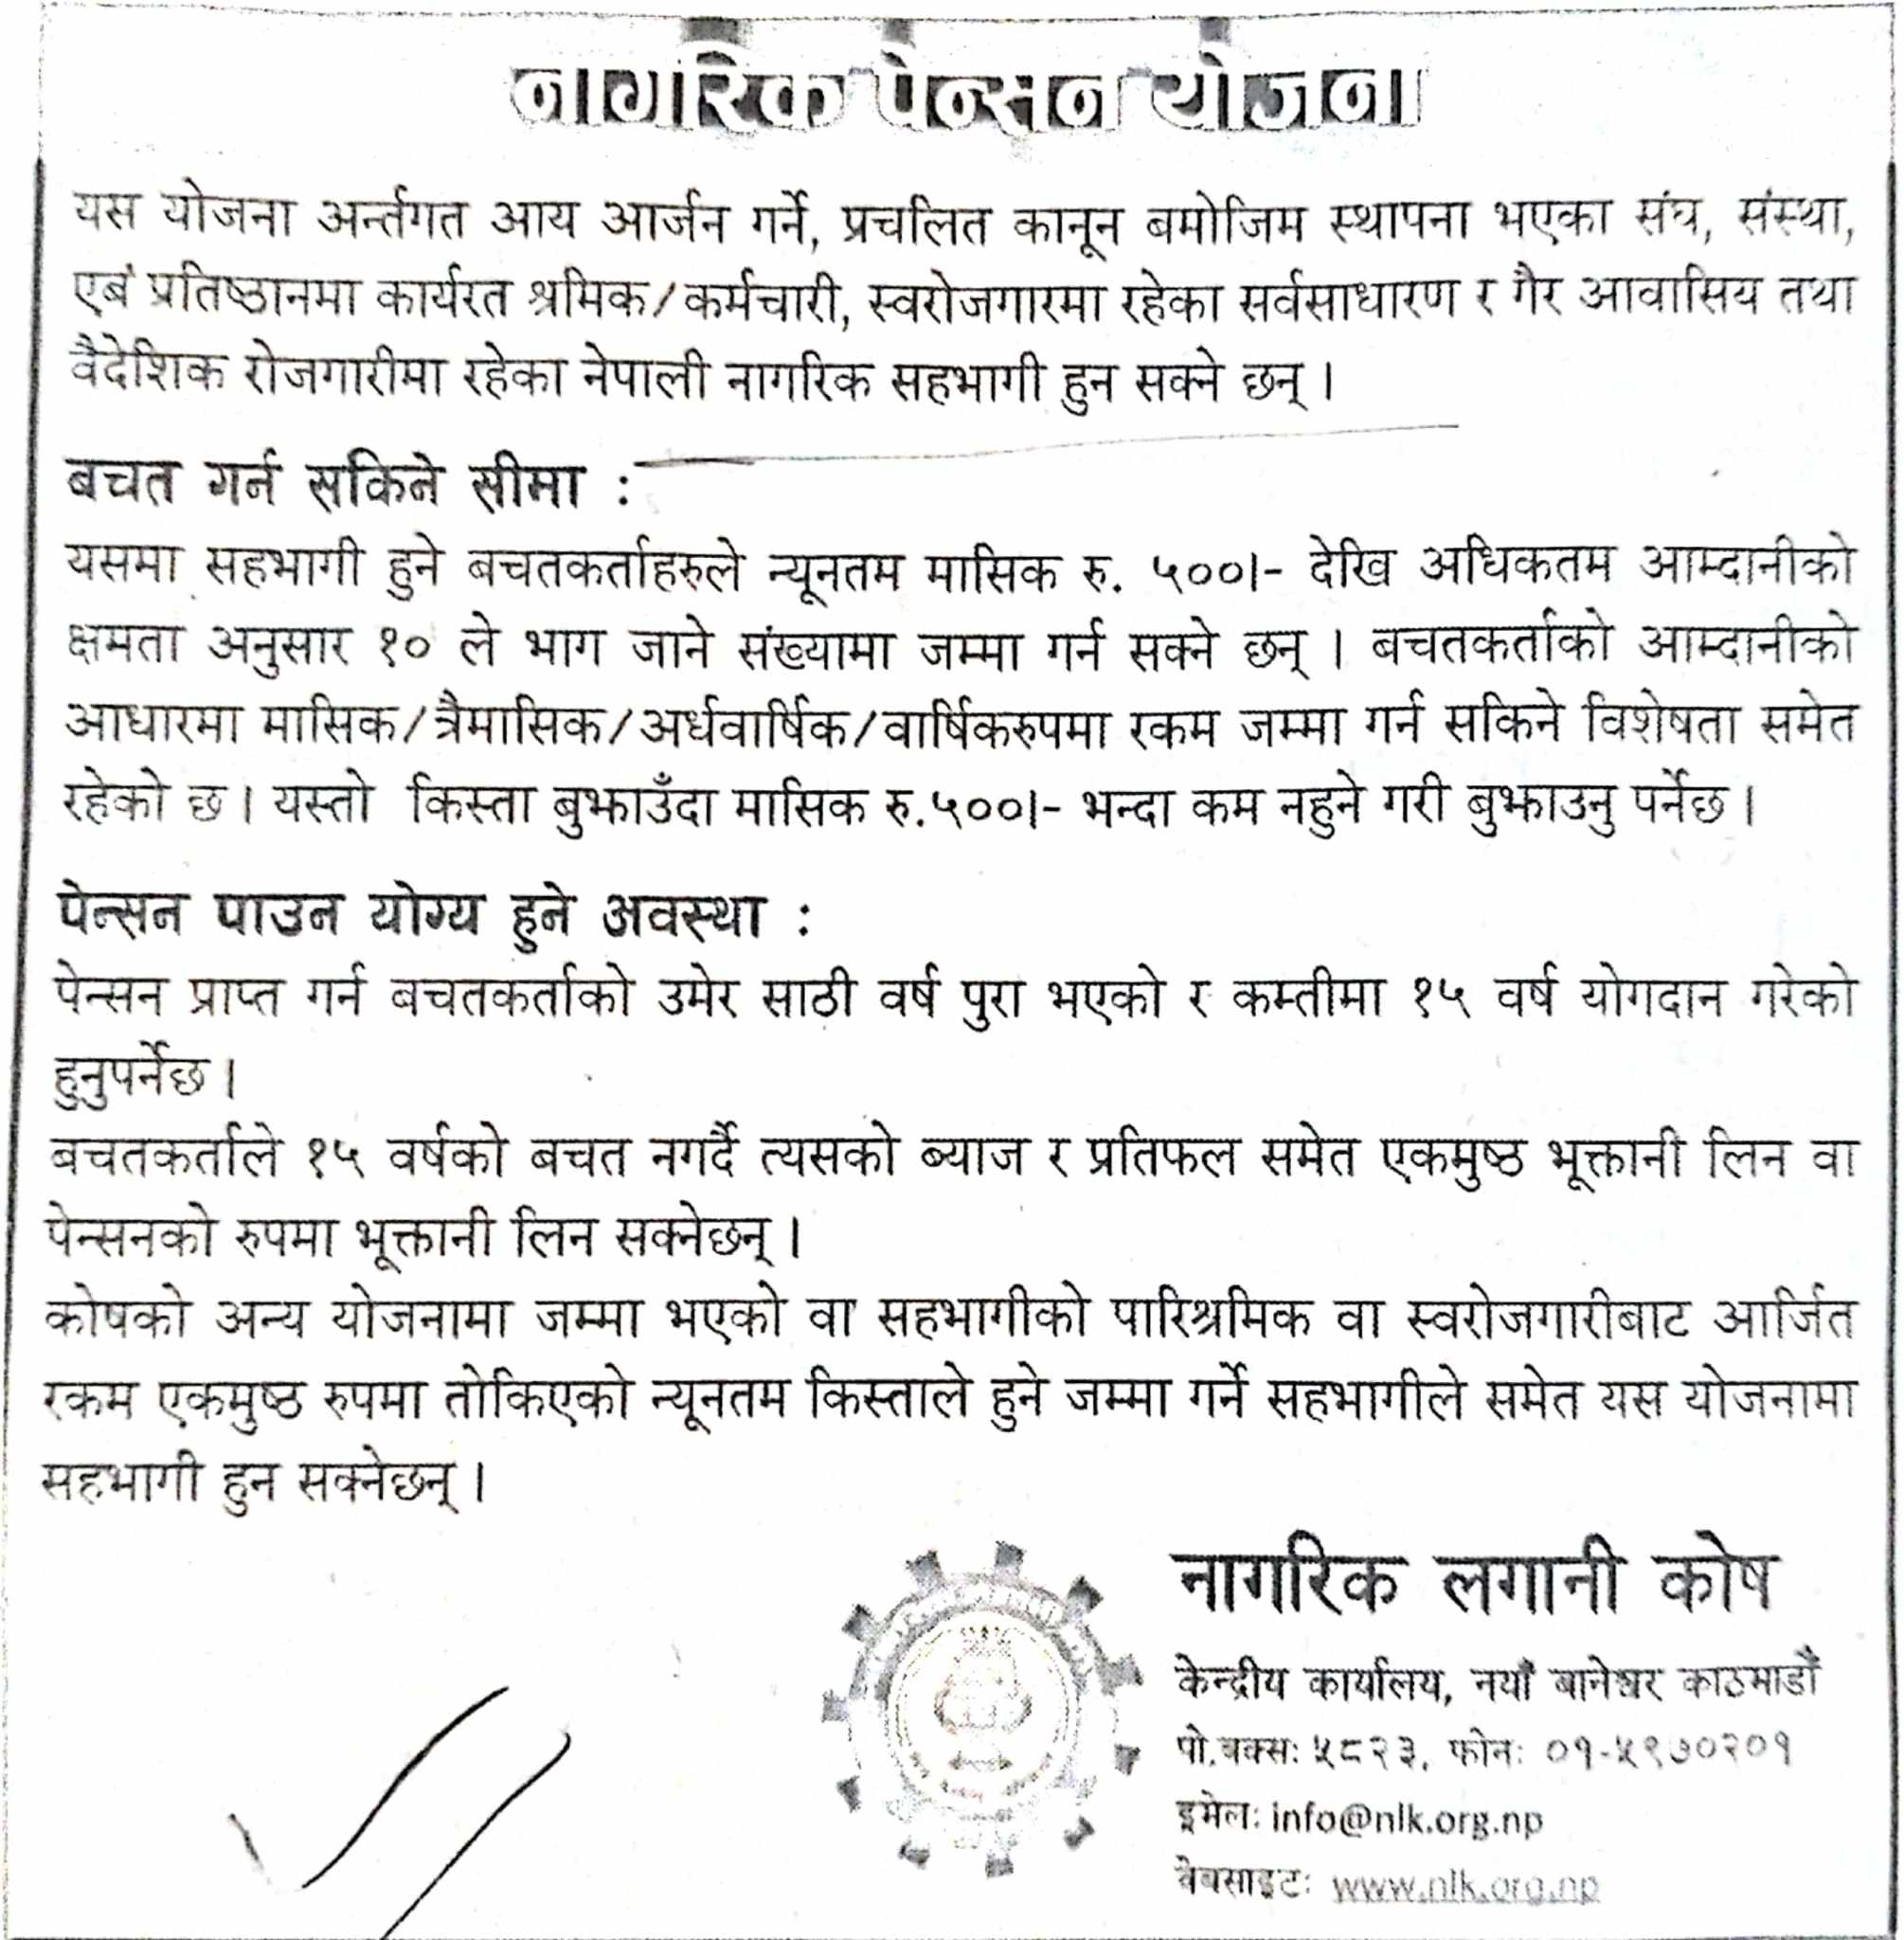 नागरिक पेन्सन योजना
यस योजना अर्न्तगत आय आर्जन गर्ने, प्रचलित कानून बमोजिम स्थापना भएका संघ, संस्था,
एबं प्रतिष्ठानमा कार्यरत श्रमिक/कर्मचारी, स्वरोजगारमा रहेका सर्वसाधारण र गैर आवासिय तथा
वैदेशिक रोजगारीमा रहेका नेपाली नागरिक सहभागी हुन सक्ने छन् ।
बचत गर्न सकिने सीमा :
यसमा सहभागी हुने बचतकर्ताहरुले न्यूनतम मासिक रु. ५००।- देखि अधिकतम आम्दानीको
क्षमता अनुसार १० ले भाग जाने संख्यामा जम्मा गर्न सक्ने छन् । बचतकर्ताको आम्दानीको
आधारमा मासिक/त्रैमासिक/अर्धवार्षिक/वार्षिकरुपमा रकम जम्मा गर्न सकिने विशेषता समेत
रहेको छ । यस्तो किस्ता बुझाउँदा मासिक रु.५००।- भन्दा कम नहुने गरी बुझाउनु पर्नेछ ।
पेन्सन पाउन योग्य हुने अवस्था :
पेन्सन प्राप्त गर्न बचतकर्ताको उमेर साठी वर्ष पुरा भएको र कम्तीमा १५ वर्ष योगदान गरेको
हुनुपर्नेछ ।
बचतकर्ताले १५ वर्षको बचत नगर्दै त्यसको ब्याज र प्रतिफल समेत एकमुष्ठ भूक्तानी लिन वा
पेन्सनको रुपमा भूक्तानी लिन सक्नेछन् ।
कोषको अन्य योजनामा जम्मा भएको वा सहभागीको पारिश्रमिक वा स्वरोजगारीबाट आर्जित
रकम एकमुष्ठ रुपमा तोकिएको न्यूनतम किस्ताले हुने जम्मा गर्ने सहभागीले समेत यस योजनामा
सहभागी हुन सक्नेछन् ।
नागरिक लगानी कोष
केन्द्रीय कार्यालय, नयाँ बानेश्वर काठमाडौं
पो.बक्स: ५८२३, फोन: ०१-५९७०२०१
इमेल: info@nlk.org.np
वेबसाइट: www.nlk.org.np